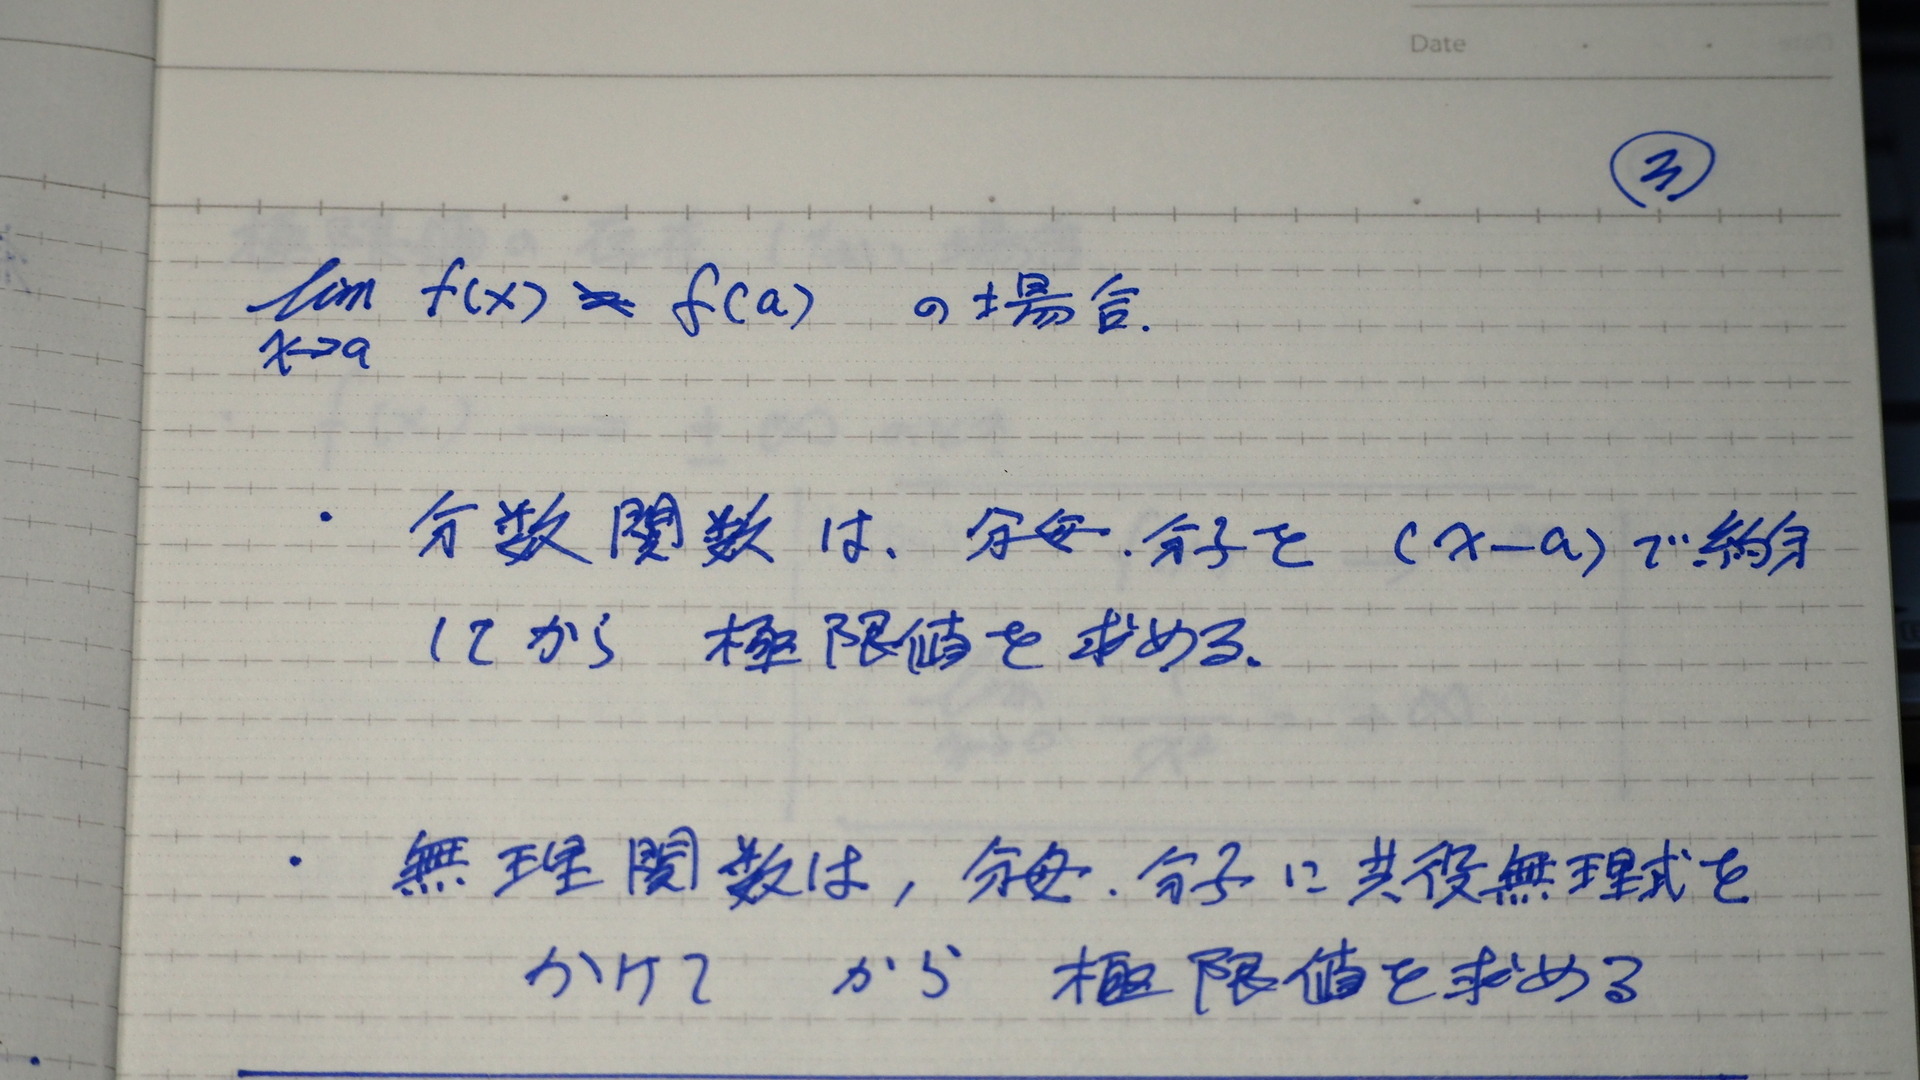 Date
③
lim f(x) ≠ f(a) の場合.
x→a
・ 分数関数は、分母.分子を (x-a)で約分
してから 極限値を求める.
・ 無理関数は, 分母.分子に共役無理式を
かけて から 極限値を求める